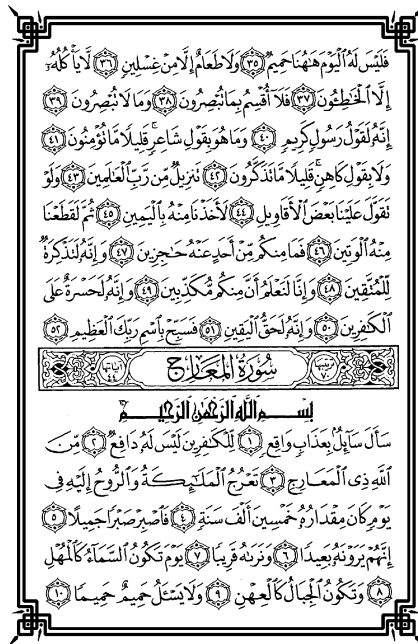 فَلَيْسَ لَهُ ٱلْيَوْمَ هَٰهُنَا حَمِيمٌ ٣٥ وَلَا طَعَامٌ إِلَّا مِنْ غِسْلِينٍ ٣٦ لَّا يَأْكُلُهُۥٓ
إِلَّا ٱلْخَٰطِـُٔونَ ٣٧ فَلَآ أُقْسِمُ بِمَا تُبْصِرُونَ ٣٨ وَمَا لَا تُبْصِرُونَ ٣٩
إِنَّهُۥ لَقَوْلُ رَسُولٍ كَرِيمٍ ٤٠ وَمَا هُوَ بِقَوْلِ شَاعِرٍ ۚ قَلِيلًا مَّا تُؤْمِنُونَ ٤١
وَلَا بِقَوْلِ كَاهِنٍ ۚ قَلِيلًا مَّا تَذَكَّرُونَ ٤٢ تَنزِيلٌ مِّن رَّبِّ ٱلْعَٰلَمِينَ ٤٣ وَلَوْ
تَقَوَّلَ عَلَيْنَا بَعْضَ ٱلْأَقَاوِيلِ ٤٤ لَأَخَذْنَا مِنْهُ بِٱلْيَمِينِ ٤٥ ثُمَّ لَقَطَعْنَا
مِنْهُ ٱلْوَتِينَ ٤٦ فَمَا مِنكُم مِّنْ أَحَدٍ عَنْهُ حَٰجِزِينَ ٤٧ وَإِنَّهُۥ لَتَذْكِرَةٌ
لِّلْمُتَّقِينَ ٤٨ وَإِنَّا لَنَعْلَمُ أَنَّ مِنكُم مُّكَذِّبِينَ ٤٩ وَإِنَّهُۥ لَحَسْرَةٌ عَلَى
ٱلْكَٰفِرِينَ ٥٠ وَإِنَّهُۥ لَحَقُّ ٱلْيَقِينِ ٥١ فَسَبِّحْ بِٱسْمِ رَبِّكَ ٱلْعَظِيمِ ٥٢
ترتيبها ٧٠ سُورَةُ المَعَارِجِ آياتها ٤٤
بِسْمِ ٱللَّهِ ٱلرَّحْمَٰنِ ٱلرَّحِيمِ
سَأَلَ سَآئِلٌۢ بِعَذَابٍ وَاقِعٍ ١ لِّلْكَٰفِرِينَ لَيْسَ لَهُۥ دَافِعٌ ٢ مِّنَ
ٱللَّهِ ذِى ٱلْمَعَارِجِ ٣ تَعْرُجُ ٱلْمَلَٰٓئِكَةُ وَٱلرُّوحُ إِلَيْهِ فِى
يَوْمٍ كَانَ مِقْدَارُهُۥ خَمْسِينَ أَلْفَ سَنَةٍ ٤ فَٱصْبِرْ صَبْرًا جَمِيلًا ٥
إِنَّهُمْ يَرَوْنَهُۥ بَعِيدًا ٦ وَنَرَىٰهُ قَرِيبًا ٧ يَوْمَ تَكُونُ ٱلسَّمَآءُ كَٱلْمُهْلِ
٨ وَتَكُونُ ٱلْجِبَالُ كَٱلْعِهْنِ ٩ وَلَا يَسْـَٔلُ حَمِيمٌ حَمِيمًا ١٠